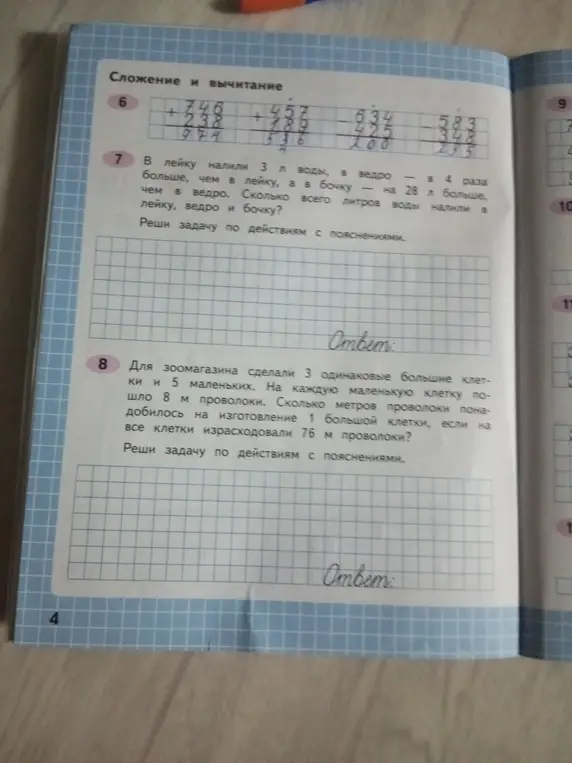 Сложение и вычитание
6
+ 746 + 457 − 634 − 583
238 189 425 348
7 В лейку налили 3 л воды, в ведро — в 4 раза
больше, чем в лейку, а в бочку — на 28 л больше,
чем в ведро. Сколько всего литров воды налили в
лейку, ведро и бочку?
Реши задачу по действиям с пояснениями.
Ответ:
8 Для зоомагазина сделали 3 одинаковые большие клет-
ки и 5 маленьких. На каждую маленькую клетку по-
шло 8 м проволоки. Сколько метров проволоки пона-
добилось на изготовление 1 большой клетки, если на
все клетки израсходовали 76 м проволоки?
Реши задачу по действиям с пояснениями.
Ответ:
4
9
10
11